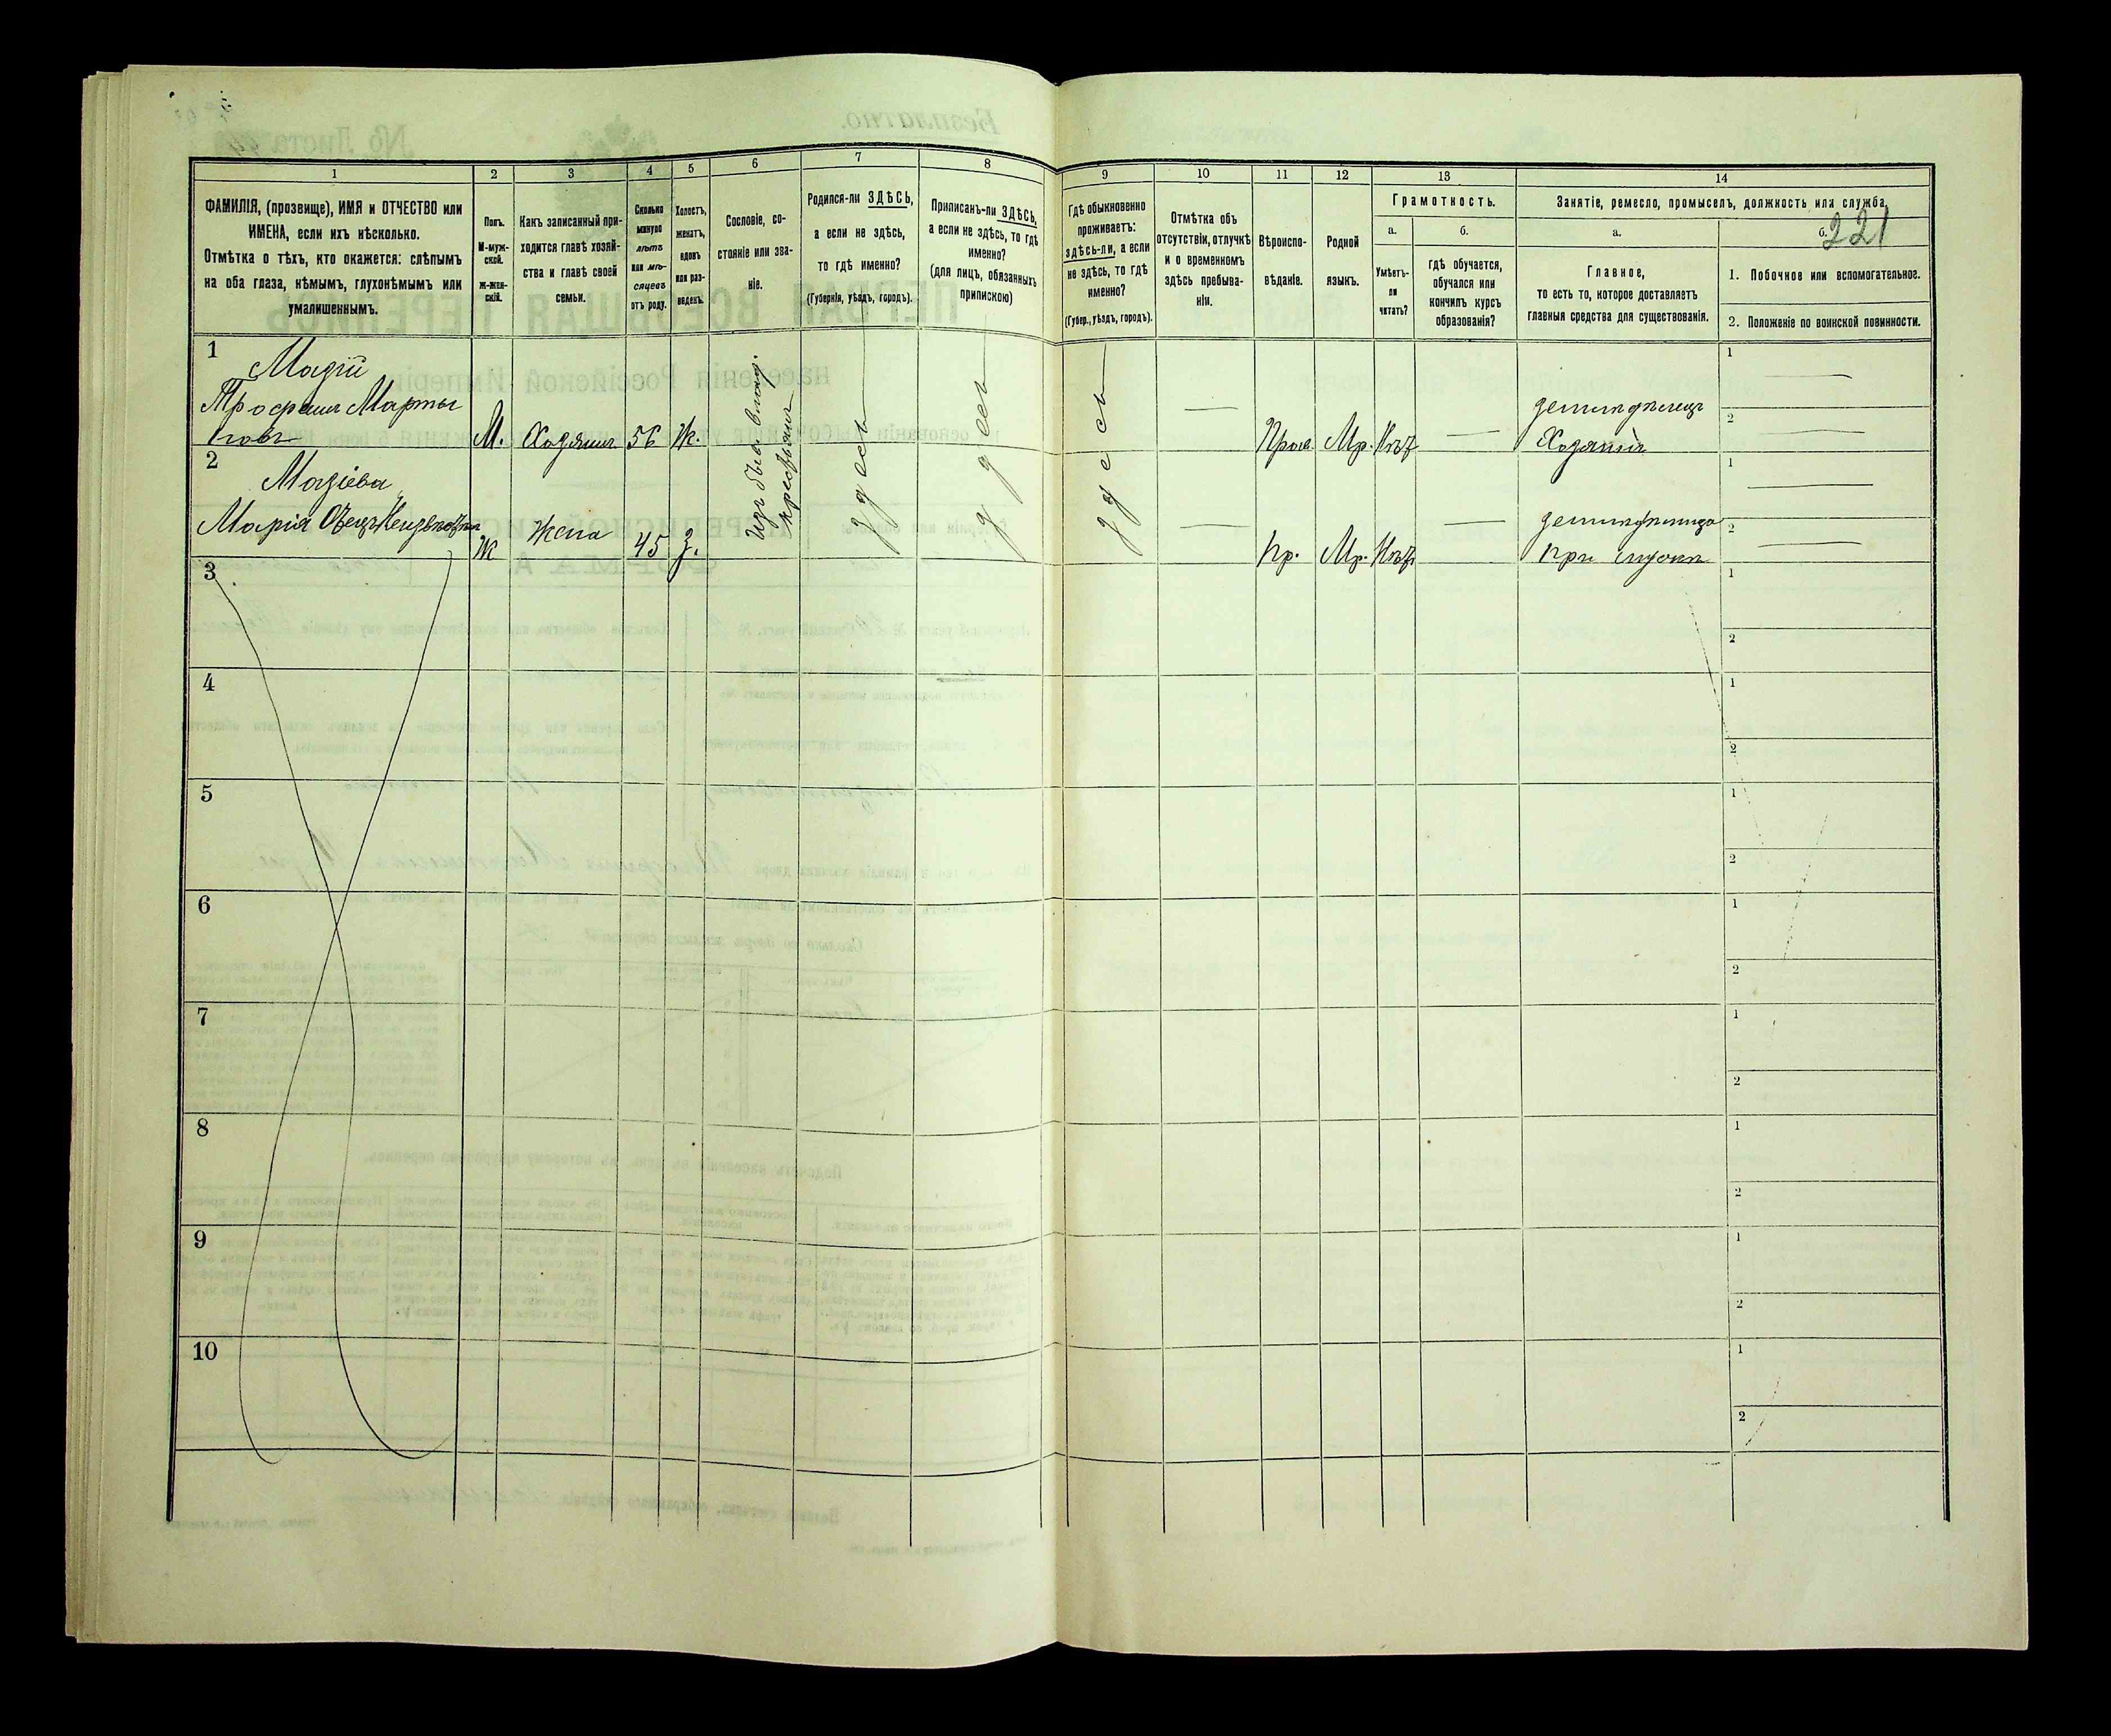 1 2 3 4 5 6 7 8 9 10 11 12 13 14
ФАМИЛІЯ, (прозвище), ИМЯ и ОТЧЕСТВО или
ИМЕНА, если ихъ нѣсколько.
Отмѣтка о тѣхъ, кто окажется: слѣпымъ
на оба глаза, нѣмымъ, глухонѣмымъ или
умалишеннымъ.
Полъ.
М-муж-
ской.
Ж-жен-
скій.
Какъ записанный при-
ходится главѣ хозяй-
ства и главѣ своей
семьи.
Сколько
минуло
лѣтъ
или мѣ-
сяцевъ
отъ роду.
Холостъ,
женатъ,
вдовъ
или раз-
веденъ.
Сословіе, со-
стояніе или зва-
ніе.
Родился-ли ЗДѢСЬ,
а если не здѣсь,
то гдѣ именно?
(Губернія, уѣздъ, городъ).
Приписанъ-ли ЗДѢСЬ,
а если не здѣсь, то гдѣ
именно?
(для лицъ, обязанныхъ
припискою)
Гдѣ обыкновенно
проживаетъ:
здѣсь-ли, а если
не здѣсь, то гдѣ
именно?
(Губер., уѣздъ, городъ).
Отмѣтка объ
отсутствіи, отлучкѣ
и о временномъ
здѣсь пребыва-
ніи.
Вѣроиспо-
вѣданіе.
Родной
языкъ.
Грамотность.
а.
Умѣетъ-
ли
читать?
б.
гдѣ обучается,
обучался или
кончилъ курсъ
образованія?
Занятіе, ремесло, промыселъ, должность или служба.
а.
Главное,
то есть то, которое доставляетъ
главныя средства для существованія.
б.
221
1. Побочное или вспомогательное.
2. Положеніе по воинской повинности.
1
Мазій
Трофимъ Марты
новъ
М.
Хозяинъ
56
Ж.
Изъ быв. влад.
крестьянъ
здесь
здесь
здесь
Прав.
Мр.
Нѣт
Хозяинъ
1
2
2
Мазіева
Марія
Ж
Жена
45
З.
Пр.
Мр.
Нѣт
при мужѣ
1
2
3
1
2
4
1
2
5
1
2
6
1
2
7
1
2
8
1
2
9
1
2
10
1
2